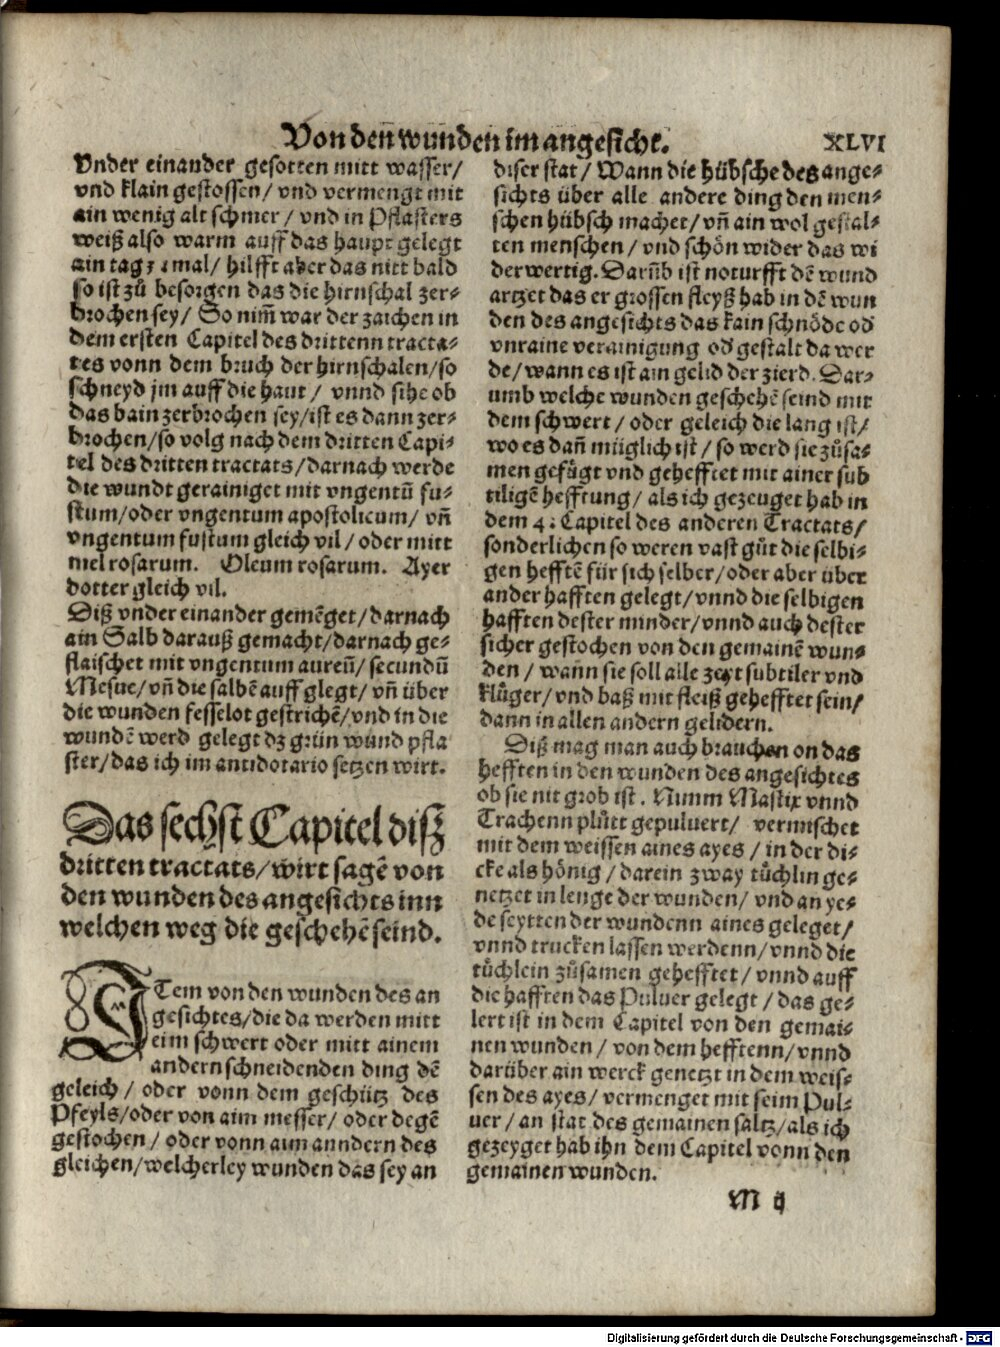 Von den̄ wunden im angesicht. XLVI
Vnder einander gesotten mitt wasser/
vnd klain gestossen/ vnd vermengt mit
ain wenig alt schmer/ vnd in Pflasters
weiß also warm auff das haupt gelegt
ain tag 3 mal/ hilfft aber das nitt bald
so ist zů besorgen das die hirnschal zer⸗
brochen sey/ So nim̄ war der zaichen in
dem ersten Capitel des drittenn tracta⸗
tes vonn dem bruch der hirnschalen/ so
schneyd jm auff die haut/ vnnd sihe ob
das bain zerbrochen sey/ ist es dann zer⸗
brochen/ so volg nach dem dritten Capi⸗
tel des dritten tractats/ darnach werde
die wundt gerainiget mit vngentū fu⸗
scum/ oder vngentum apostolicum/ vn̄
vngentum fuscum gleich vil/ oder mitt
mel rosarum. Oleum rosarum. Ayer
dotter gleich vil.
Diß vnder einander gemēget/ darnach
ain Salb darauß gemacht/ darnach ge⸗
flaischet mit vngentum aureū/ secundū
Mesue/ vn̄ die salbē auff glegt/ vn̄ über
die wunden fesselot gestrichē/ vnd in die
wundē werd gelegt dz grün wund pfla
ster/ das ich im antidotario setzen wirt.
Das sechst Capitel disz
dritten tractats/ wirt sagē von
den wunden des angesichts inn
welchen weg die geschehē seind.
ITem von den wunden des an
gesichtes/ die da werden mitt
eim schwert oder mitt ainem
andern schneidenden ding dē
geleich/ oder vonn dem geschütz des
Pfeyls/ oder von aim messer/ oder degē
gestochen/ oder vonn aim anndern des
gleichen/ welcherley wunden das sey an
diser stat/ Wann die hübsche des ange⸗
sichts über alle andere ding den men⸗
schen hübsch machet/ vn̄ ain wol gestal⸗
ten menschen/ vnd schön wider das wi
derwertig. Darūb ist noturfft dē wund
artzet das er grossen fleyß hab in dē wun
den des angesichts das kain schnöde od̓
vnraine verainigung od̓ gestalt da wer
de/ wann es ist ain gelid der zierd. Dar⸗
umb welche wunden geschehē seind mit
dem schwert/ oder geleich die lang ist/
wo es dan̄ müglich ist/ so werd sie zůsa⸗
men gefügt vnd gehefftet mit ainer sub
tiligē hefftung/ als ich gezeuget hab in
dem 4. Capitel des anderen Tractats/
sonderlichen so weren vast gůt die selbi⸗
gen hefftē für sich selber/ oder aber über
ander hafften gelegt/ vnnd die selbigen
hafften dester minder/ vnnd auch dester
sicher gestochen von den gemainē wun⸗
den/ wan̄ sie soll alle zeyt subtiler vnd
klůger/ vnd baß mit fleiß gehefftet sein/
dann in allen andern gelidern.
Diß mag man auch brauchen on das
hefften in den wunden des angesichtes
ob sie nit grob ist. Nimm Mastix vnnd
Trachenn plůtt gepuluert/ vermischet
mit dem weissen aines ayes/ in der di⸗
cke als hönig/ darein zway tůchlin ge⸗
netzet in lenge der wunden/ vnd an ye⸗
de seytten der wundenn aines geleget/
vnnd trucken lassen werdenn/ vnnd die
tůchlein zůsamen gehefftet/ vnnd auff
die hafften das Puluer gelegt/ das ge⸗
lert ist in dem Capitel von den gemai⸗
nen wunden/ von dem hefftenn/ vnnd
darüber ain werck genetzt in dem weis⸗
sen des ayes/ vermenget mit seim Pul⸗
uer/ an stat des gemainen saltz/ als ich
gezeyget hab ihn dem Capitel vonn den
gemainen wunden.
M ij
Digitalisierung gefördert durch die Deutsche Forschungsgemeinschaft - DFG